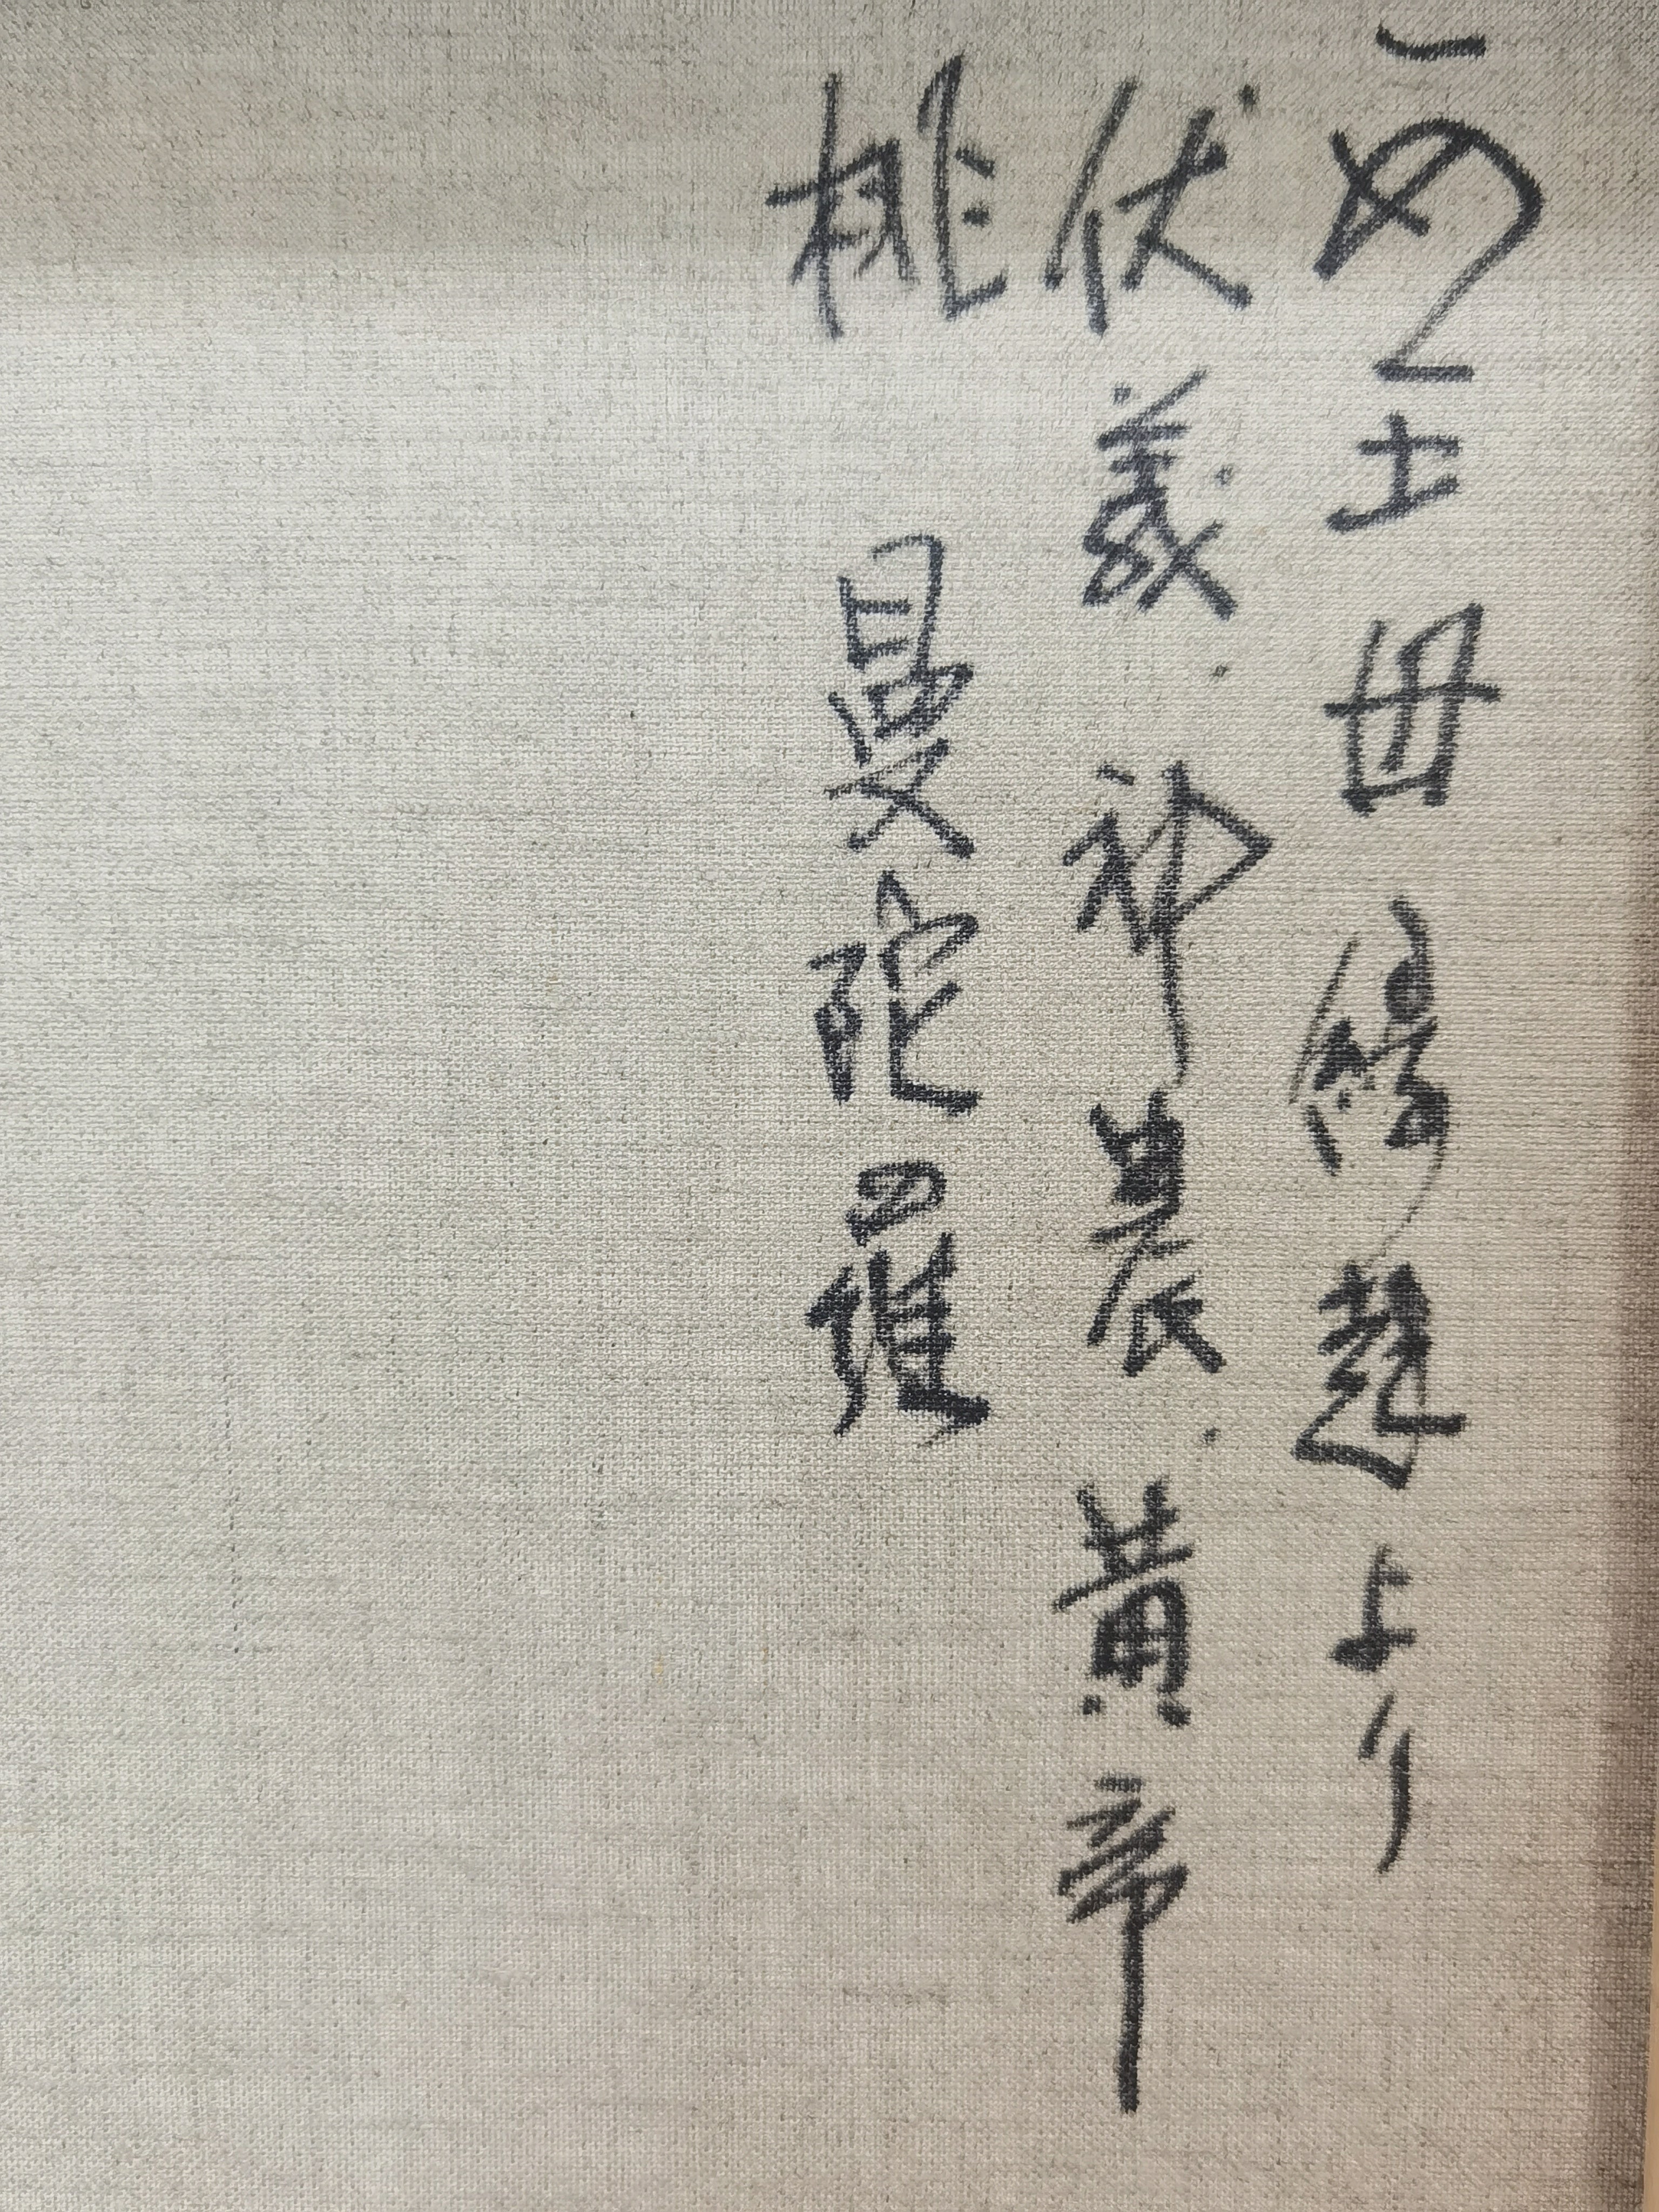 西王母傳題より
伏羲・神農・黃帝
桃 曼陀羅